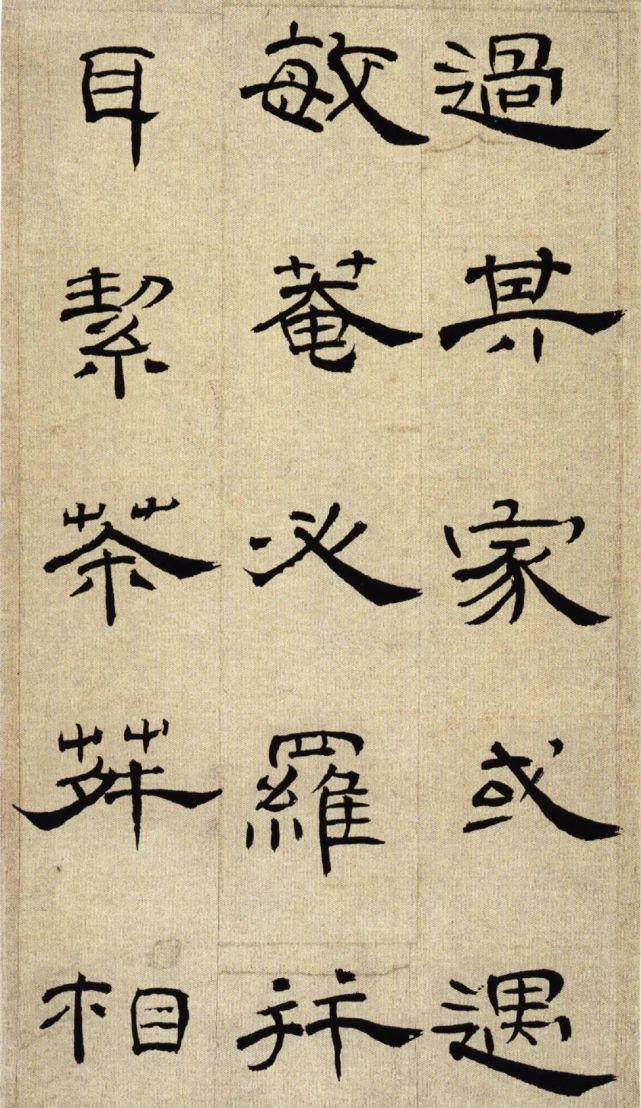 過其家或遇
敏菴必羅拜
耳絜茶荈相